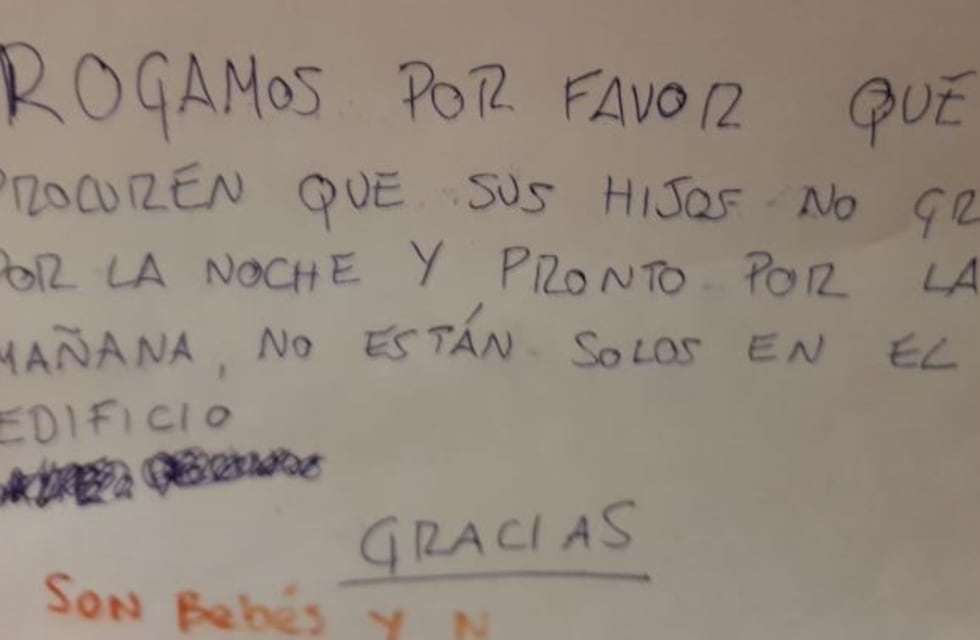 ROGAMOS POR FAVOR QUÉ
PROCUREN QUE SUS HIJOS NO GR
POR LA NOCHE Y PRONTO POR LA
MAÑANA, NO ESTÁN SOLOS EN EL
EDIFICIO
GRACIAS
SON Bebés Y N